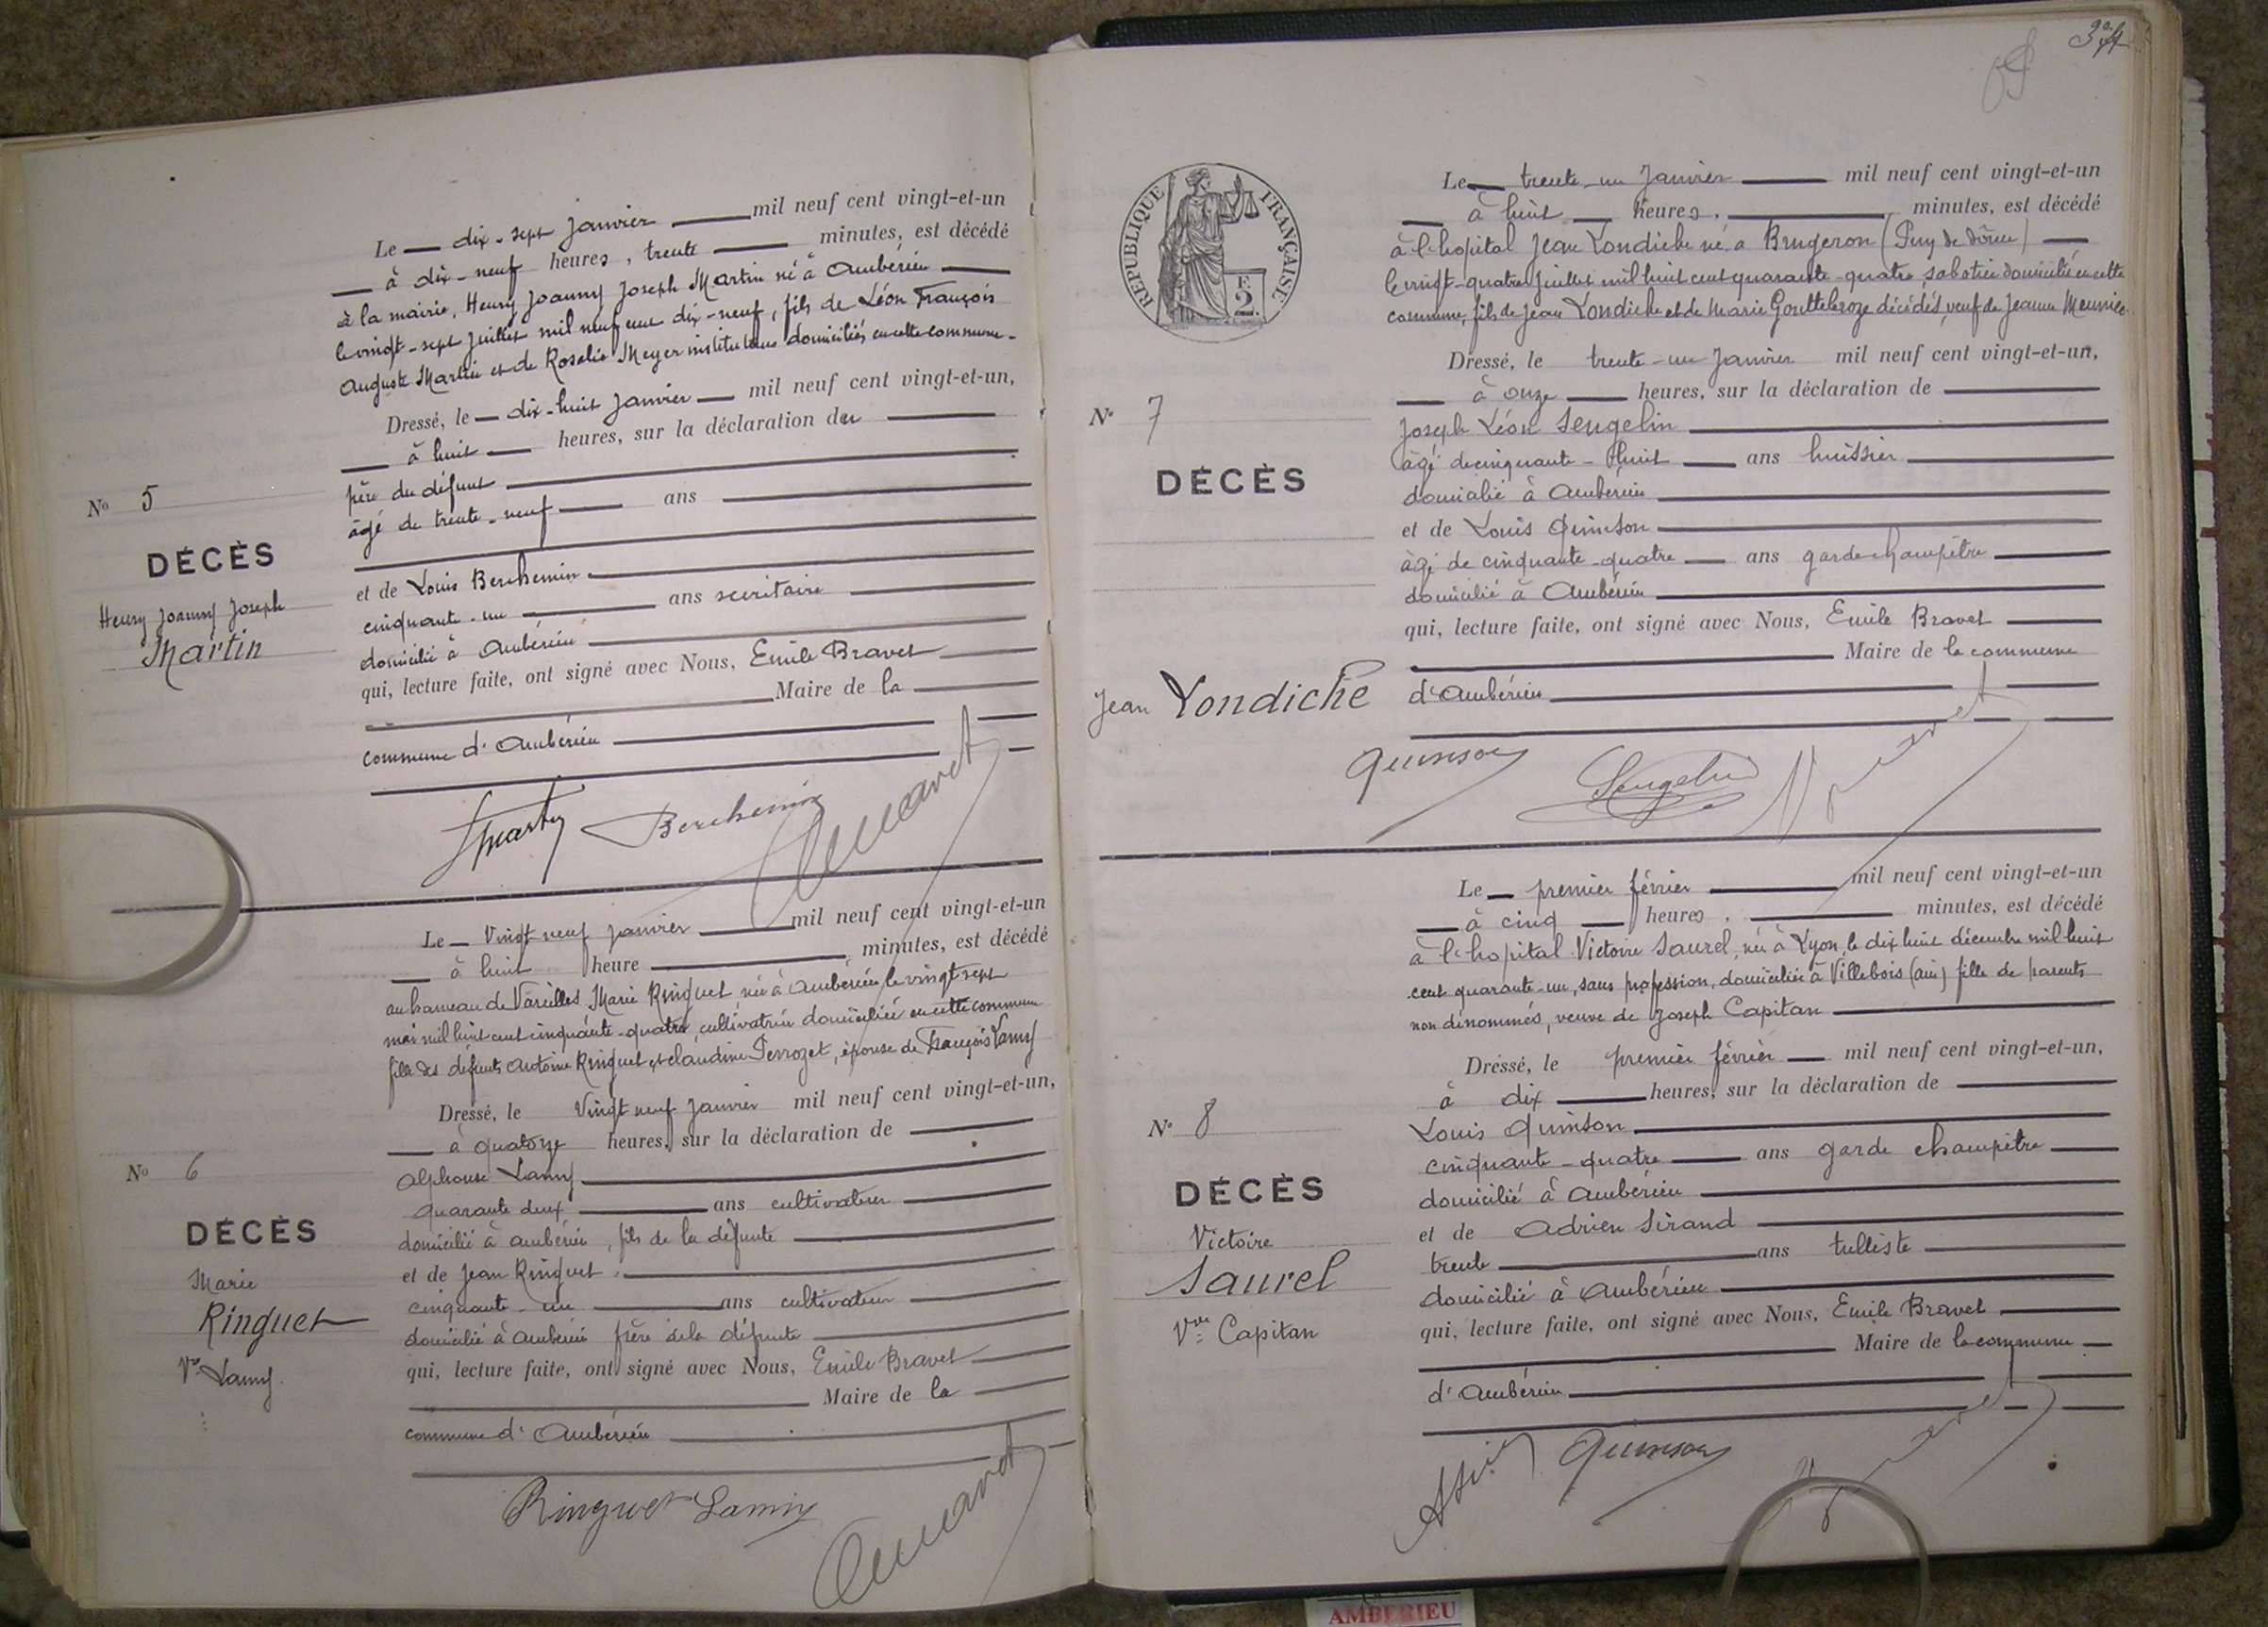 Le dix-sept Janvier mil neuf cent vingt-et-un
à dix-neuf heures, trente minutes, est décédé
à la mairie, Henry Joanny Joseph Martin né à Ambérieu
le vingt-sept Juillet mil neuf cent dix-neuf, fils de Léon François
Auguste Martin et de Rosalie Meyer instituteurs domiciliés en cette commune.
Dressé, le dix-huit Janvier mil neuf cent vingt-et-un,
à huit heures, sur la déclaration du
père du défunt
âgé de trente-neuf ans
et de Louis Berchemin
cinquante-un ans secrétaire
domicilié à Ambérieu
qui, lecture faite, ont signé avec Nous, Emile Bravet
Maire de la
commune d'Ambérieu
No 5
DÉCÈS
Henry Joanny Joseph
Martin
Berchemin
Le Vingt neuf Janvier mil neuf cent vingt-et-un
à huit heure minutes, est décédé
au hameau de Vareilles Marie Ringuet née à Ambérieu le vingt sept
mai mil huit cent cinquante-quatre, cultivatrice domiciliée en cette commune
fille des défunts Antoine Ringuet et Claudine Perrozet, épouse de François Lamy
Dressé, le Vingt neuf Janvier mil neuf cent vingt-et-un,
à quatorze heures, sur la déclaration de
Alphonse Lamy
quarante deux ans cultivateur
domicilié à Ambérieu, fils de la défunte
et de Jean Ringuet
cinquante-un ans cultivateur
domicilié à Ambérieu frère de la défunte
qui, lecture faite, ont signé avec Nous, Emile Bravet
Maire de la
commune d'Ambérieu
No 6
DÉCÈS
Marie
Ringuet
Lamy
Ringuet Lamy
RÉPUBLIQUE FRANÇAISE
F.
2.
Le trente-un Janvier mil neuf cent vingt-et-un
à huit heures, minutes, est décédé
à l'hopital Jean Yondiche né à Brugeron (Puy de dôme)
le vingt-quatre Juillet mil huit cent quarante-quatre, sabotier domicilié en cette
commune, fils de Jean Yondiche et de Marie Gouttebroze décédés, veuf de Jeanne Meunier.
Dressé, le trente-un Janvier mil neuf cent vingt-et-un,
à onze heures, sur la déclaration de
Joseph Léon Sengelin
âgé de cinquante-huit ans huissier
domicilié à Ambérieu
et de Louis Quinson
âgé de cinquante-quatre ans garde champêtre
domicilié à Ambérieu
qui, lecture faite, ont signé avec Nous, Emile Bravet
Maire de la commune
d'Ambérieu
No 7
DÉCÈS
Jean Yondiche
Quinson
Sengelin
Le premier février mil neuf cent vingt-et-un
à cinq heures, minutes, est décédé
à l'hopital Victoire Saurel, née à Lyon, le dix huit décembre mil huit
cent quarante-un, sans profession, domiciliée à Villebois (ain) fille de parents
non dénommés, veuve de Joseph Capitan
Dréssé, le premier février mil neuf cent vingt-et-un,
à dix heures, sur la déclaration de
Louis Quinson
cinquante-quatre ans garde champêtre
domicilié à Ambérieu
et de Adrien Sirand
trente ans tulliste
domicilié à Ambérieu
qui, lecture faite, ont signé avec Nous, Emile Bravet
Maire de la commune
d'Ambérieu
No 8
DÉCÈS
Victoire
Saurel
Vve Capitan
Quinson
AMBERIEU